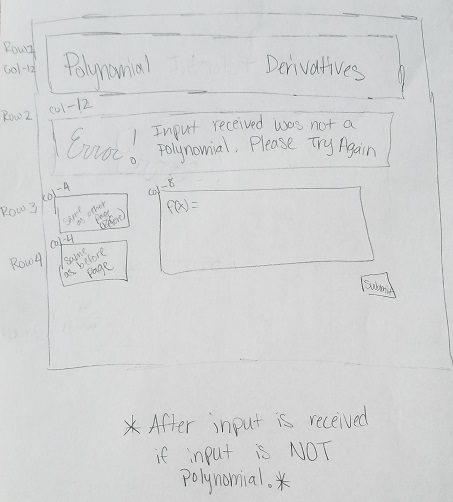 Row1
Col-12
Polynomial Derivatives
col-12
Row2
Error! Input received was not a
Polynomial. Please Try Again
col-4
col-8
Row3
same as other
page
(before)
f(x)=
col-4
Row4
same
as before
page
Submit
* After input is received
if input is NOT
polynomial.*